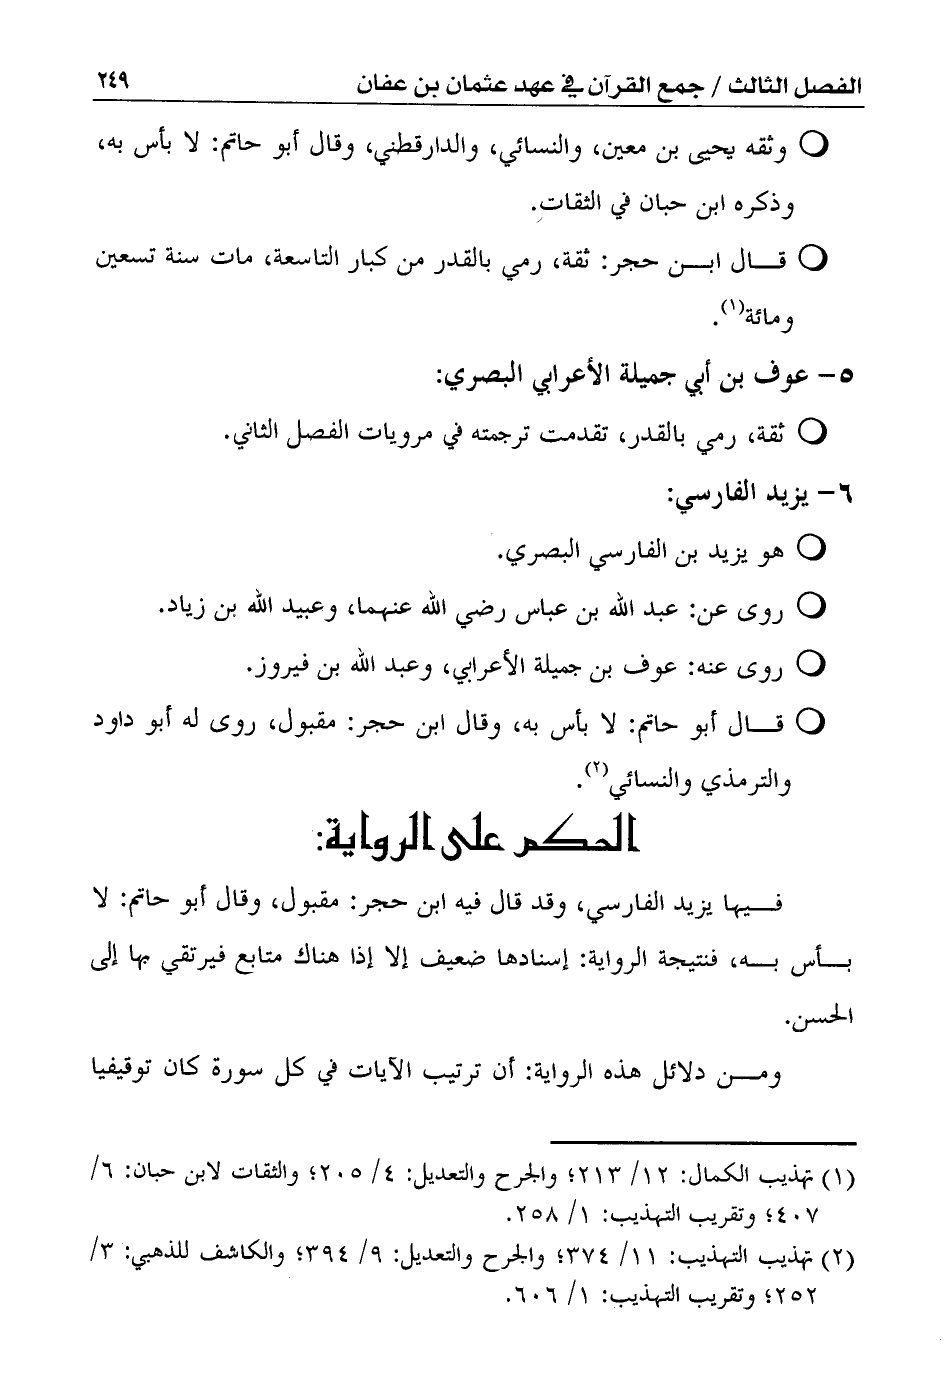 الفصل الثالث / جمع القرآن في عهد عثمان بن عفان ٢٤٩
○ وثقه يحيى بن معين، والنسائي، والدارقطني، وقال أبو حاتم: لا بأس به،
وذكره ابن حبان في الثقات.
○ قـــال ابـــن حجر: ثقة، رمي بالقدر من كبار التاسعة، مات سنة تسعين
ومائة(١).
٥- عوف بن أبي جميلة الأعرابي البصري:
○ ثقة، رمي بالقدر، تقدمت ترجمته في مرويات الفصل الثاني.
٦- يزيد الفارسي:
○ هو يزيد بن الفارسي البصري.
○ روى عن: عبد الله بن عباس رضي الله عنهما، وعبيد الله بن زياد.
○ روى عنه: عوف بن جميلة الأعرابي، وعبد الله بن فيروز.
○ قـــال أبو حاتم: لا بأس به، وقال ابن حجر: مقبول، روى له أبو داود
والترمذي والنسائي(٢).
الحكم على الرواية:
فـــيها يزيد الفارسي، وقد قال فيه ابن حجر: مقبول، وقال أبو حاتم: لا
بـــأس بـــه، فنتيجة الرواية: إسنادها ضعيف إلا إذا هناك متابع فيرتقي بها إلى
الحسن.
ومـــن دلائل هذه الرواية: أن ترتيب الآيات في كل سورة كان توقيفيا
(١) تهذيب الكمال: ١٢/ ٢١٣؛ والجرح والتعديل: ٤/ ٢٠٥؛ والثقات لابن حبان: ٦/
٤٠٧؛ وتقريب التهذيب: ١/ ٢٥٨.
(٢) تهذيب التهذيب: ١١/ ٣٧٤؛ والجرح والتعديل: ٩/ ٣٩٤؛ والكاشف للذهبي: ٣/
٢٥٢؛ وتقريب التهذيب: ١/ ٦٠٦.